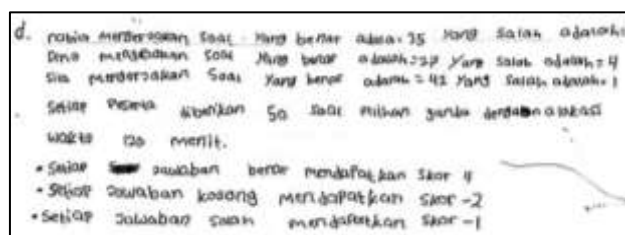 d. nabia mengerjakan Soal yang benar adala = 35 Yang Salah adalah
Dina mengerjakan Soal Yang benar adalah = 27 Yang Salah adalah = 4
Sia mengerjakan Soal Yang benar adalah = 41 Yang Salah adalah = 1
Setiap Peserta diberikan 50 Soal Pilihan ganda dengan alokasi
waktu 120 menit.
• Setiap Jawaban benar mendapatkan Skor 4
• Setiap Jawaban kosong mendapatkan Skor -2
• Setiap Jawaban Salah mendapatkan Skor -1